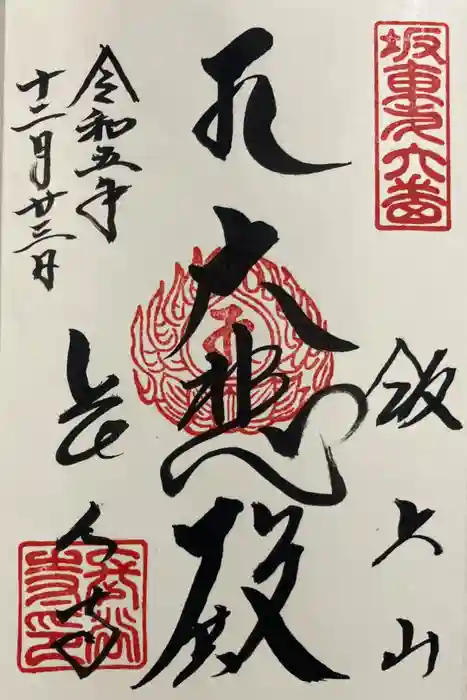 坂東第六番
飯上山
大悲殿
長谷寺
長谷寺印
令和五年
十二月廿三日